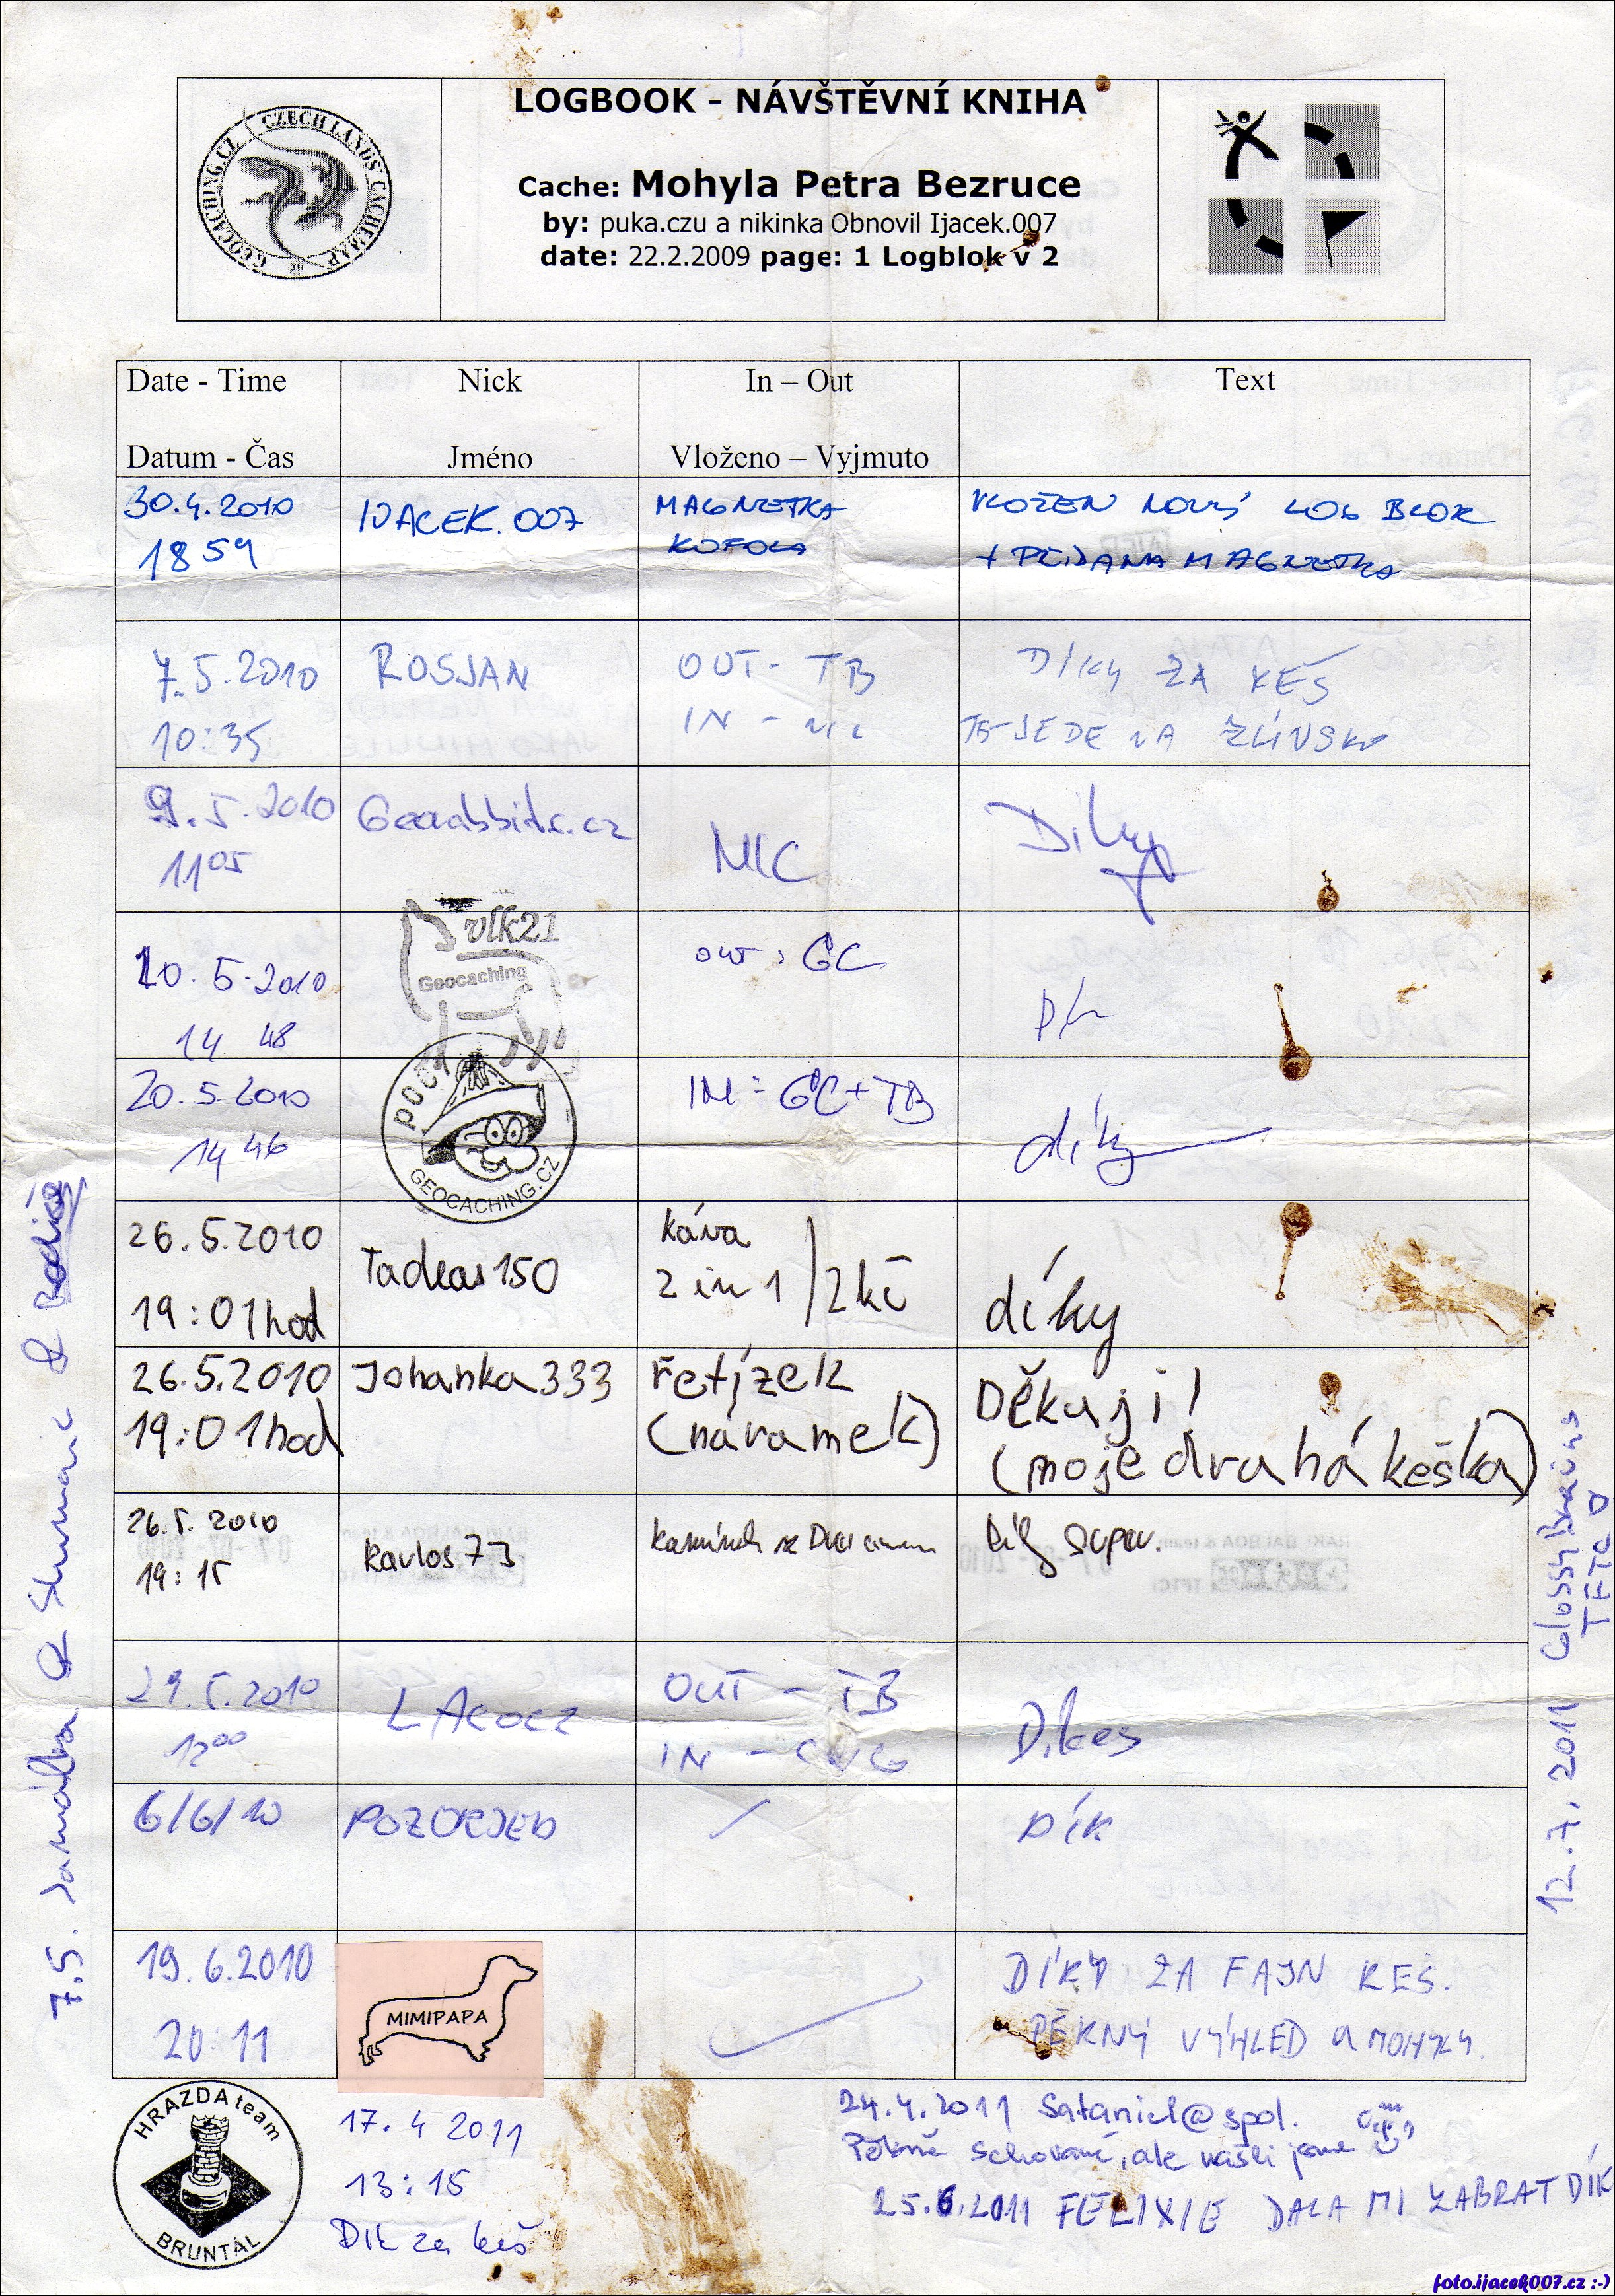 CZECH LANDS' CACHEMAP
GEOCACHING.CZ
LOGBOOK - NÁVŠTĚVNÍ KNIHA
Cache: Mohyla Petra Bezruce
by: puka.czu a nikinka Obnovil Ijacek.007
date: 22.2.2009 page: 1 Logblok v 2
Date - Time Nick In – Out Text
Datum - Čas Jméno Vloženo – Vyjmuto
30.4.2010 IJACEK.007 MAGNETKA VLOŽEN NOVÝ LOG BLOK
18 59 KOFOLA + PŘIDANA MAGNETKA
7.5.2010 ROSJAN OUT - TB DÍKY ZA KEŠ
10:35 IN - nic TB JEDE NA ZLÍNSKO
9.5.2010 NIC Díky
11 05
vlk21
Geocaching
20.5.2010 OUT: GC
14 48
20.5.2010 IN: GC+TB díky
14 46
GEOCACHING.CZ
26.5.2010 Tadeas150 káva
19:01hod 2 in 1 / 2kč díky
26.5.2010 Johanka333 řetízek Děkuji!
19:01hod (náramek) (moje drahá keška)
26.5.2010 Karlos73 super.
19:15
29.5.2010 LACOCZ OUT - TB Dikes
12 00 IN - CWG
6/6/10 POZORJED / DÍK
19.6.2010 MIMIPAPA DÍKY ZA FAJN KEŠ.
20:11 PĚKNÝ VÝHLED A MOHYLY.
HRAZDA team
BRUNTÁL
17.4 2011
13:15
Dík za keš
24.4.2011 Sataniel@spol.
Pěkně schované, ale našli jsme
25.6.2011 FELIXIE DALA MI ZABRAT DÍK
7.5. & &
12.7.2011 GlossyBrains
TFTC
foto.ijacek007.cz :-)